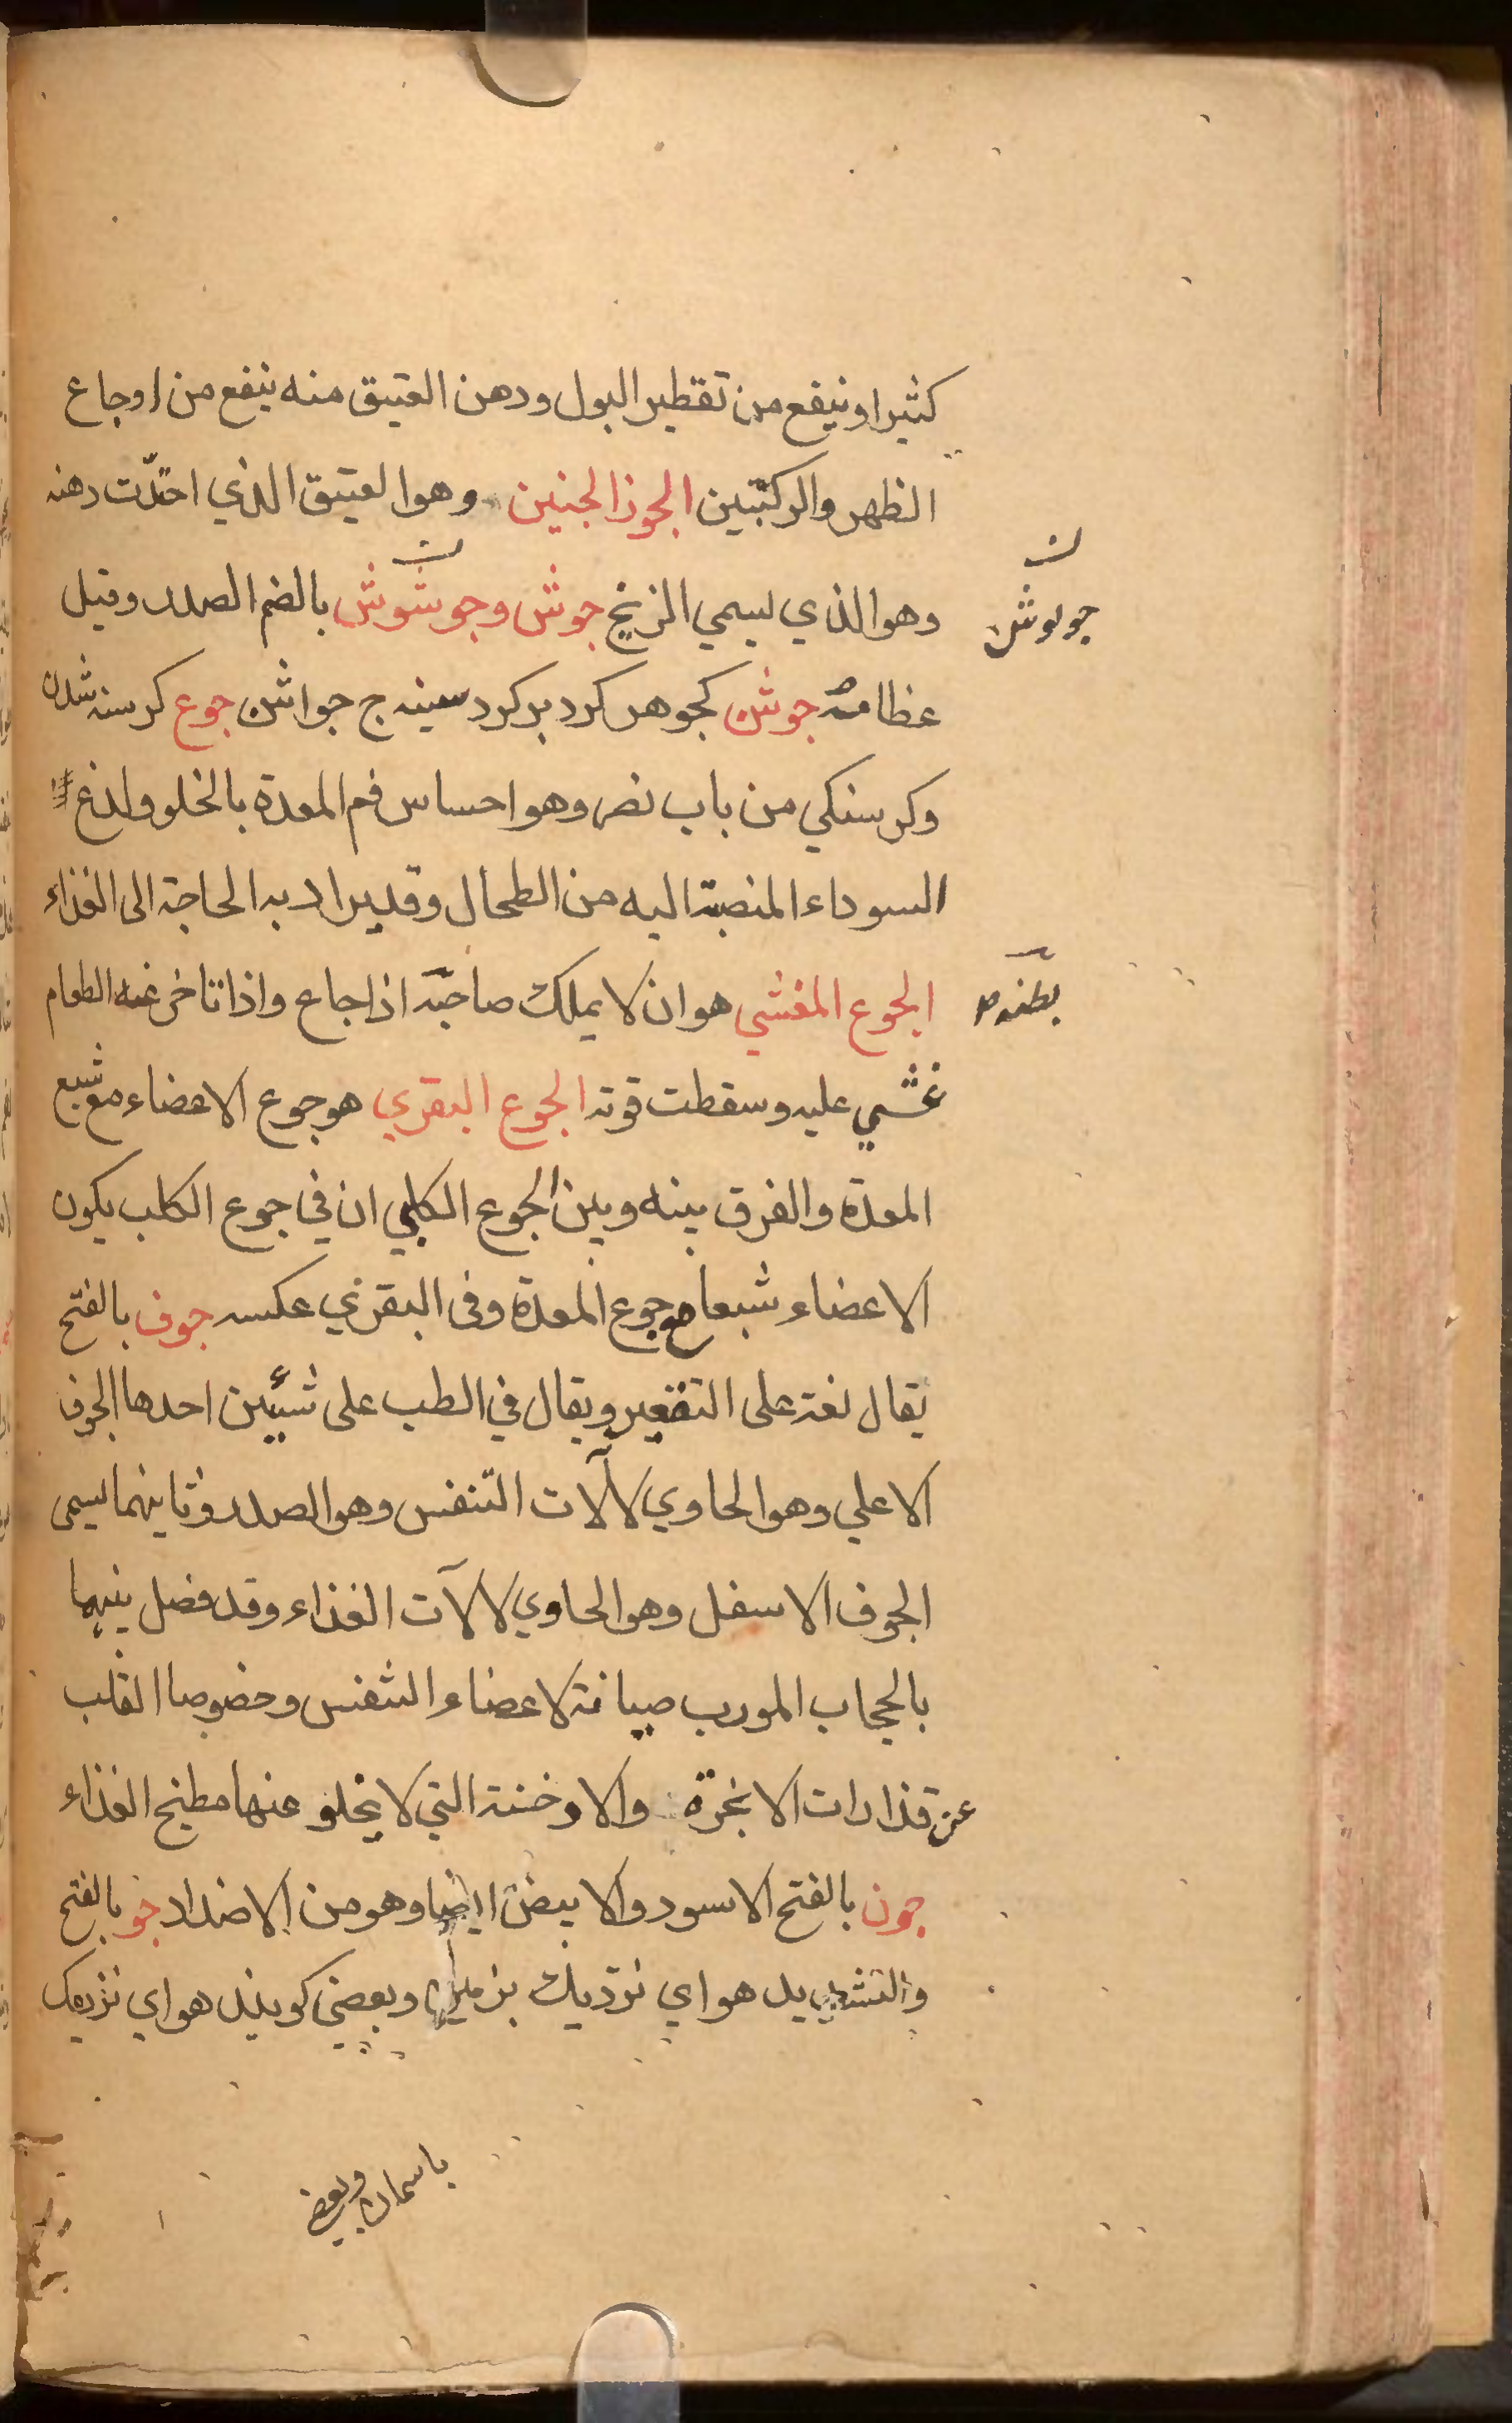 كثيرا وينفع من تقطير البول ودهن العتيق منه ينفع من اوجاع
الظهر والركبتين الجوز الجنين وهو العتيق الذي احتدّت دهنه
وهو الذي يسمي الزنخ جوش وجوشوش بالضم الصدر وقيل
جوبوش
عظامه جوشن كجوهر كرد بر كرد سينه ج جواشن جوع كرسنه شدن
وكرسنكي من باب نصر وهو احساس فم المعدة بالخلو ولذغ
السوداء المنصبة اليه من الطحال وقد يراد به الحاجة الى الغذاء
الجوع المغشي هو ان لا يملك صاحبه اذا جاع واذا تاخر عنه الطعام
غشي عليه وسقطت قوته الجوع البقري هو جوع الاعضاء مع شبع
المعدة والفرق بينه وبين الجوع الكلبي ان في جوع الكلب يكون
الاعضاء شبعا مع جوع المعدة وفى البقري عكسه جوف بالفتح
يقال لغة على التقعير ويقال في الطب على شيئين احدها الجوف
الاعلي وهو الحاوي لآلات التنفس وهو الصدر وثانيهما يسمى
الجوف الاسفل وهو الحاوي لالآت الغذاء وقد فصل بينهما
بالحجاب المورب صيانة لاعضاء التنفس وخصوصا القلب
عن قذارات الابخرة والادخنة التي لا يخلو عنها مطبخ الغذاء
جون بالفتح الاسود والابيض ايضا وهو من الاضداد جو بالفتح
والتشديد هواي نزديك بزمين وبعضي كويند هواي نزديك
باسمان وبعضي